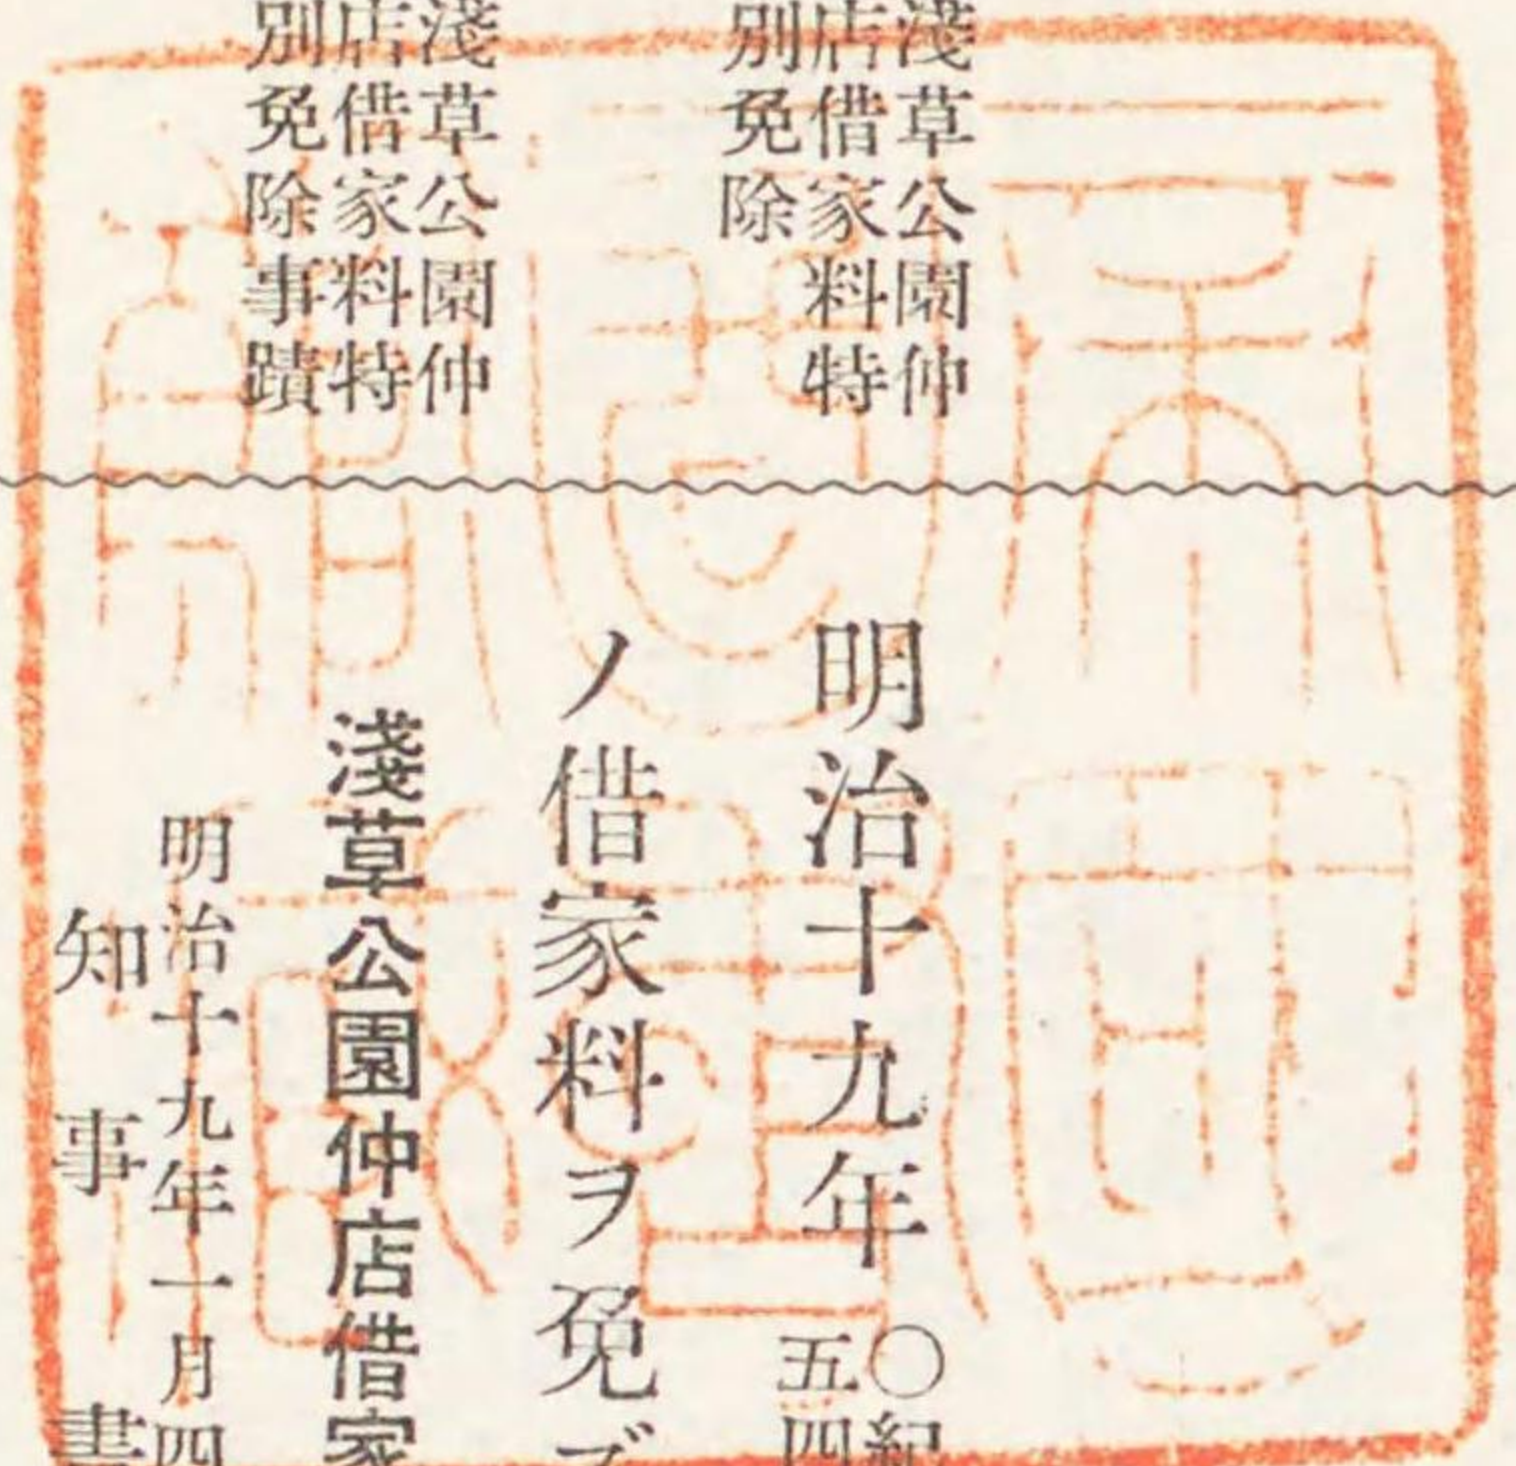 淺草公園仲
店借家料特
別免除
淺草公園仲
店借家料特
別免除事蹟
明治十九年
〇紀
五四
ノ借家料ヲ免ズ
淺草公園仲店借家
明治十九年一月四
知事書